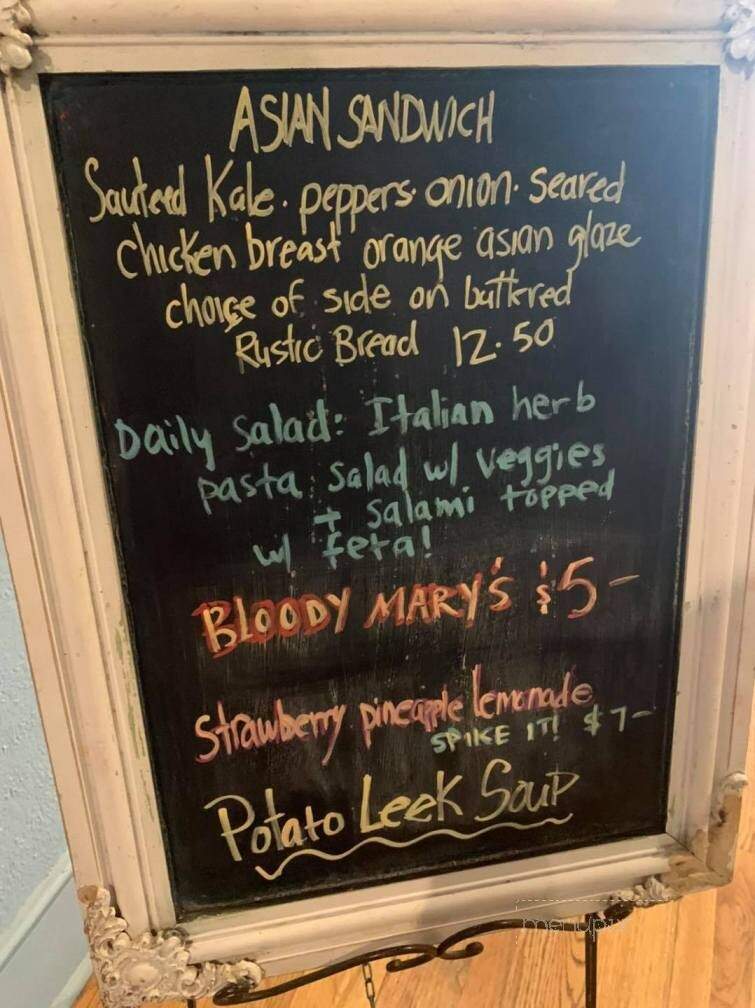 ASIAN SANDWICH
Sauteed Kale · peppers · onion · seared
chicken breast orange asian glaze
choice of side on buttered
Rustic Bread 12.50
Daily Salad: Italian herb
pasta salad w/ veggies
+ salami topped
w/ feta!
BLOODY MARY'S $5-
Strawberry pineapple lemonade
SPIKE IT! $7-
Potato Leek Soup
menupix